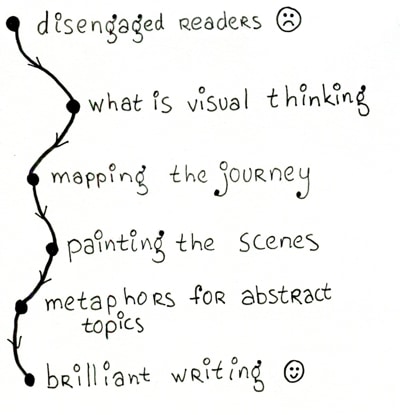 disengaged readers ☹
what is visual thinking
mapping the journey
painting the scenes
metaphors for abstract
topics
brilliant writing ☺